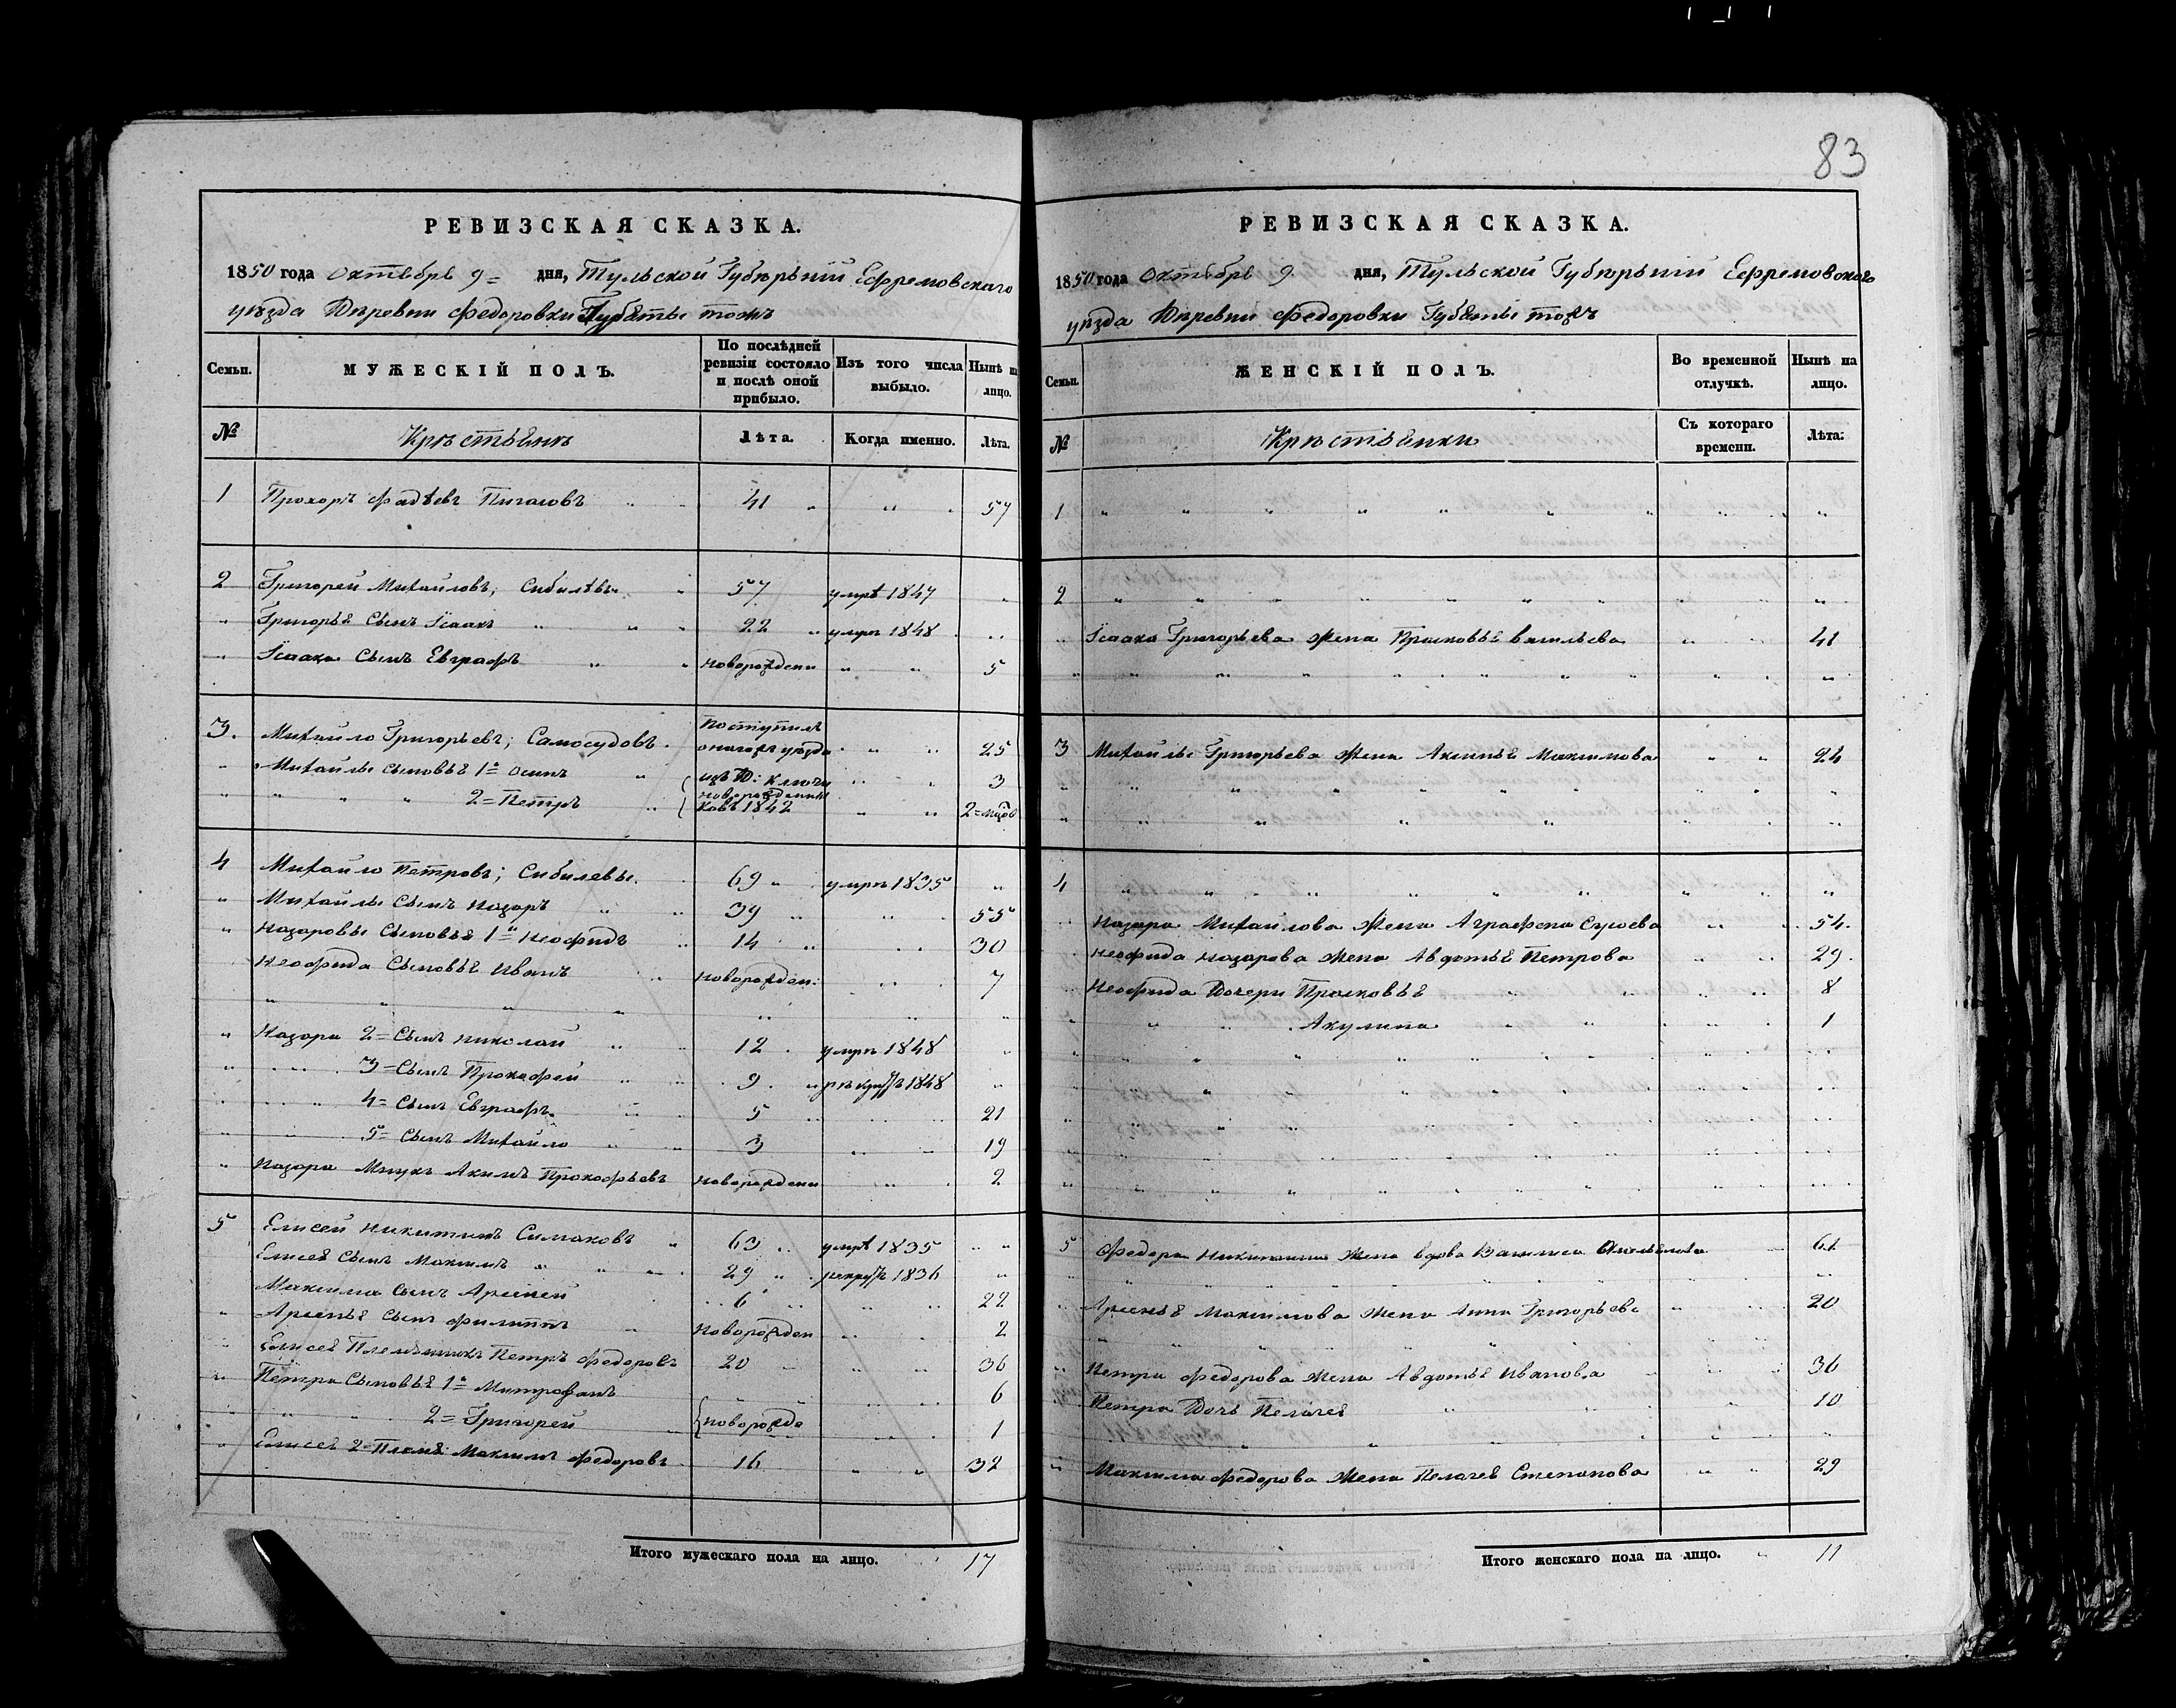 83
РЕВИЗСКАЯ СКАЗКА.
1850 года Октебрь 9 = дня, Тульской Губѣрьній Ефремовскаго
уѣзда Дѣревни Федоровки Губѣты тожъ
Семьи. МУЖЕСКІЙ ПОЛЪ. По послѣдней ревизіи состояло и послѣ оной прибыло. Изъ того числа выбыло. Нынѣ на лицо.
№ Крѣстьянѣ Лѣта. Когда именно. Лѣта.
1 Прохоръ Фадѣевъ 41 57
2 Григорей Михайловъ; Сибилѣвъ 57 умрѣ 1847
Григорьѣ Сынъ Ісаакъ 22 умрѣ 1848
Ісаака Сынъ Евграфъ новорождени 5
3. Михайло Григорьевъ; Самосудовъ. Поступилъ оногожъ уѣзда 25
Михайлы Сыновьѣ 1й Осипъ изъ Д: Ключи 3
2 = Петръ новорожденны ковъ 1842 2 = мцов
4 Михайло Петровъ; Сибилевы. 69 умрѣ 1835
Михайлы Сынъ Назаръ 39 55
Назаровы Сыновьѣ 1й Неофидъ 14 30
Неофида Сыновьѣ Иванъ новорожден: 7
Назара 2 = Сынъ Николай 12 умрѣ 1848
3 = Сынъ Прокофей 9 рѣкрутъ 1848
4 = Сынъ Евграфъ 5 21
5 = Сынъ Михайло 3 19
Назара Внукъ Акимъ Прокофьевъ новорождени 2
5 Елисей Никитинъ Симаковъ 63 умрѣ 1835
Елисеѣ Сынъ Максимъ 29 рекрутъ 1836
Максима Сынъ Арсеней 6 22
Арсеньѣ Сынъ Филиппъ новорожден 2
Елисеѣ Племѣнникъ Петръ Федоровъ 20 36
Петра Сыновьѣ 1й Митрофанъ 6
2 = Григорей новорожде 1
Елисеѣ 2 = Племѣ: Максимъ Федоровъ 16 32
Итого мужескаго пола на лицо. 17
РЕВИЗСКАЯ СКАЗКА.
1850 года Октебрь 9. дня, Тульской Губѣрьній Ефремовскаго
уѣзда Дѣревни Федоровки Губѣты тожъ
Семьи. ЖЕНСКІЙ ПОЛЪ. Во временной отлучкѣ. Нынѣ на лицо.
№ Крѣстьянки Съ котораго времени. Лѣта:
1
2
Ісаака Григорьева Жена Прасковьѣ Васильева 41
3 Михайлы Григорьева Жена Аксиньѣ Максимова 24
4
Назара Михайлова Жена Аграфена Сысоева 54.
Неофида Назарова Жена Авдотьѣ Петрова 29.
Неофида Дочери Прасковьѣ 8
Акулина 1
5 Федора Никитина Жена вдова Василиса 61
Арсеньѣ Максимова Жена Анна Григорьева 20
Петра Федорова Жена Авдотьѣ Иванова 36
Петра Дочь Пелагеѣ 10
Максима Федорова Жена Пелагеѣ Степанова 29
Итого женскаго пола на лицо. 11